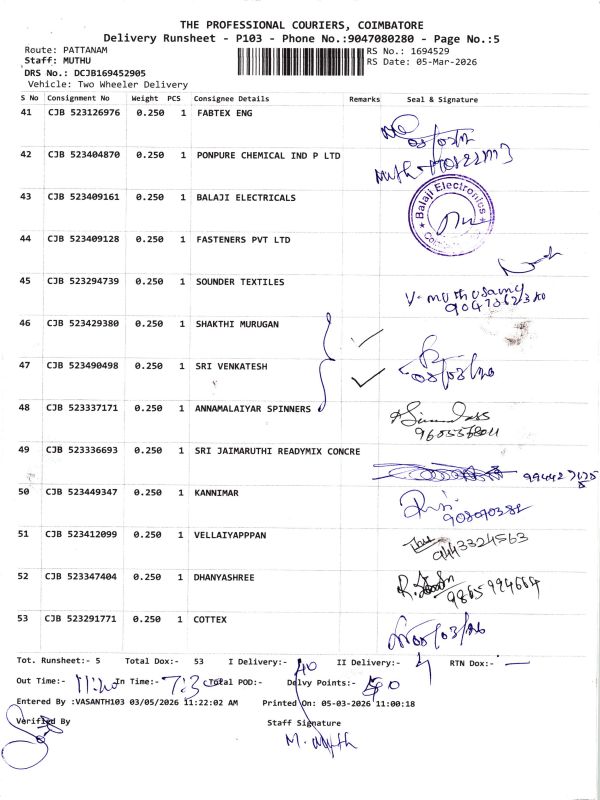 THE PROFESSIONAL COURIERS, COIMBATORE
Delivery Runsheet - P103 - Phone No.:9047080280 - Page No.:5
Route: PATTANAM RS No.: 1694529
Staff: MUTHU RS Date: 05-Mar-2026
DRS No.: DCJB169452905
Vehicle: Two Wheeler Delivery
S No Consignment No Weight PCS Consignee Details Remarks Seal & Signature
41 CJB 523126976 0.250 1 FABTEX ENG
42 CJB 523404870 0.250 1 PONPURE CHEMICAL IND P LTD
43 CJB 523409161 0.250 1 BALAJI ELECTRICALS
Balaji Electronics
44 CJB 523409128 0.250 1 FASTENERS PVT LTD
45 CJB 523294739 0.250 1 SOUNDER TEXTILES
V. muthusamy
46 CJB 523429380 0.250 1 SHAKTHI MURUGAN
47 CJB 523490498 0.250 1 SRI VENKATESH
48 CJB 523337171 0.250 1 ANNAMALAIYAR SPINNERS
49 CJB 523336693 0.250 1 SRI JAIMARUTHI READYMIX CONCRE
50 CJB 523449347 0.250 1 KANNIMAR
51 CJB 523412099 0.250 1 VELLAIYAPPPAN
9443324563
52 CJB 523347404 0.250 1 DHANYASHREE
53 CJB 523291771 0.250 1 COTTEX
Tot. Runsheet:- 5 Total Dox:- 53 I Delivery:- 40 II Delivery:- RTN Dox:- —
Out Time:- 11:20 In Time:- 7:30 Total POD:- Delvy Points:-
Entered By :VASANTH103 03/05/2026 11:22:02 AM Printed On: 05-03-2026 11:00:18
Verified By Staff Signature
M. Muth